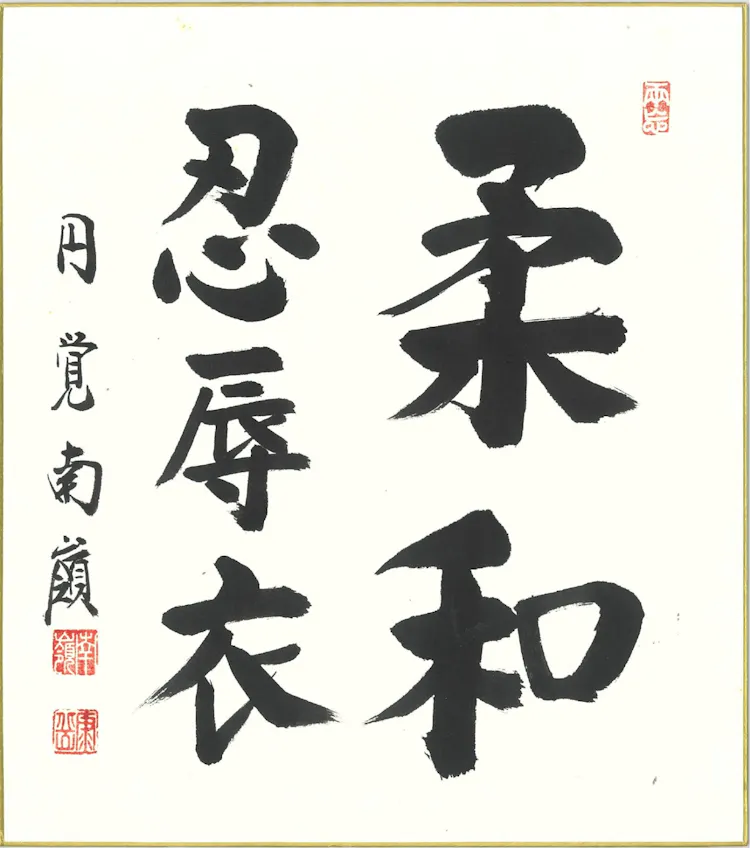 柔和
忍辱衣
円覚南嶺
南嶺